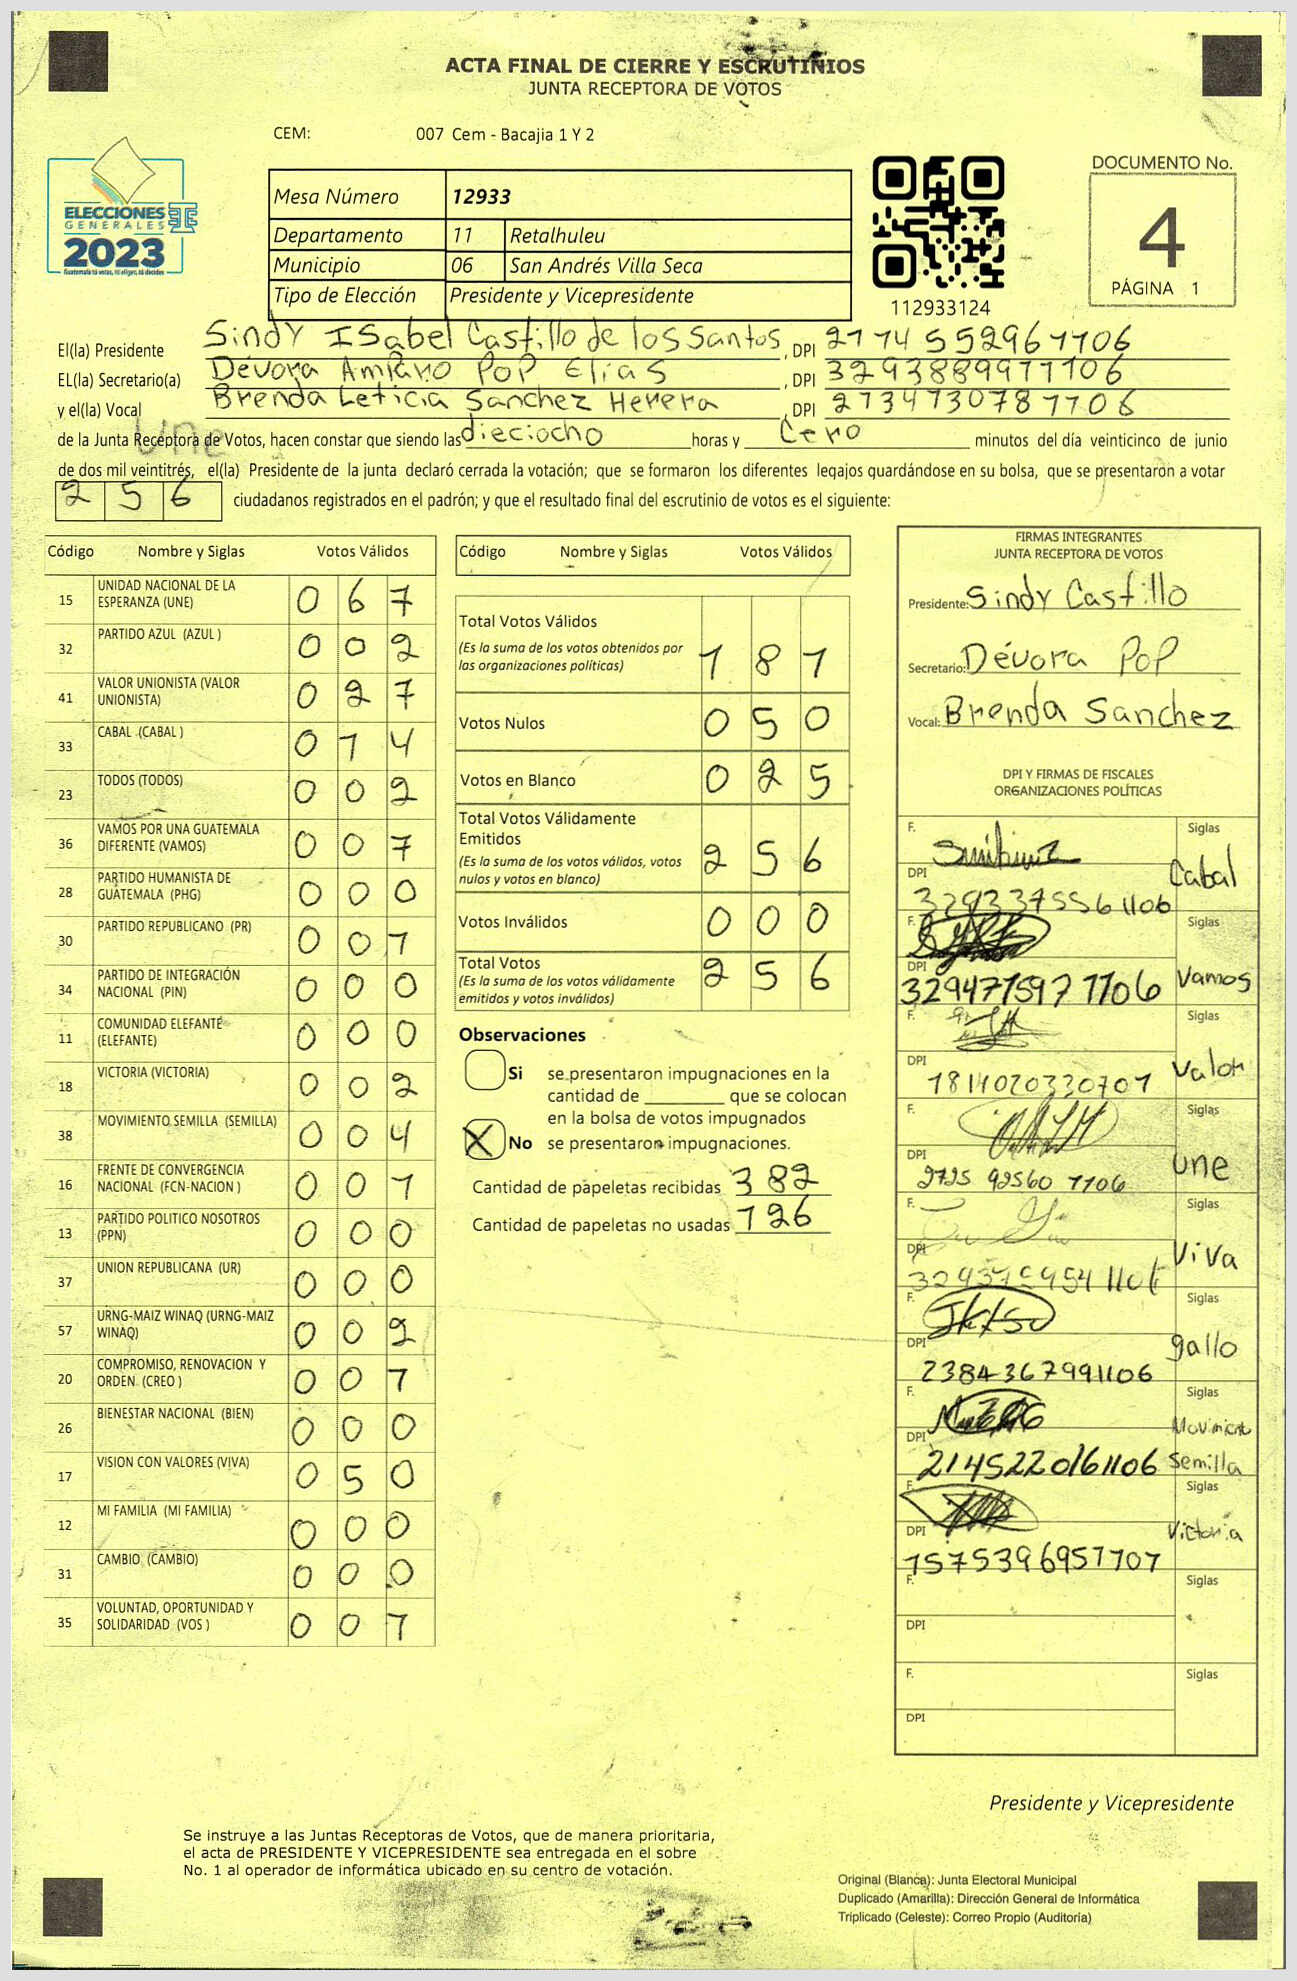 ACTA FINAL DE CIERRE Y ESCRUTINIOS
JUNTA RECEPTORA DE VOTOS
CEM: 007 Cem - Bacajia 1 Y 2
ELECCIONES
GENERALES
2023
Guatemala tú votas, tú eliges, tú decides
Mesa Número 12933
Departamento 11 Retalhuleu
Municipio 06 San Andrés Villa Seca
Tipo de Elección Presidente y Vicepresidente
112933124
DOCUMENTO No.
4
PÁGINA 1
El(la) Presidente Sindy ISabel Castillo de los Santos, DPI 2774552967706
EL(la) Secretario(a) Dévora Amparo Pop Elías, DPI 3293889977706
y el(la) Vocal Brenda Leticia Sanchez Herera, DPI 2734730787706
une
de la Junta Receptora de Votos, hacen constar que siendo las dieciocho horas y Cero minutos del día veinticinco de junio
de dos mil veintitrés, el(la) Presidente de la junta declaró cerrada la votación; que se formaron los diferentes legajos guardándose en su bolsa, que se presentaron a votar
256 ciudadanos registrados en el padrón; y que el resultado final del escrutinio de votos es el siguiente:
Código Nombre y Siglas Votos Válidos
15 UNIDAD NACIONAL DE LA ESPERANZA (UNE) 067
32 PARTIDO AZUL (AZUL ) 002
41 VALOR UNIONISTA (VALOR UNIONISTA) 027
33 CABAL (CABAL ) 014
23 TODOS (TODOS) 002
36 VAMOS POR UNA GUATEMALA DIFERENTE (VAMOS) 007
28 PARTIDO HUMANISTA DE GUATEMALA (PHG) 000
30 PARTIDO REPUBLICANO (PR) 001
34 PARTIDO DE INTEGRACIÓN NACIONAL (PIN) 000
11 COMUNIDAD ELEFANTE (ELEFANTE) 000
18 VICTORIA (VICTORIA) 002
38 MOVIMIENTO SEMILLA (SEMILLA) 004
16 FRENTE DE CONVERGENCIA NACIONAL (FCN-NACION ) 001
13 PARTIDO POLITICO NOSOTROS (PPN) 000
37 UNION REPUBLICANA (UR) 000
57 URNG-MAIZ WINAQ (URNG-MAIZ WINAQ) 002
20 COMPROMISO, RENOVACION Y ORDEN (CREO ) 001
26 BIENESTAR NACIONAL (BIEN) 000
17 VISION CON VALORES (VIVA) 050
12 MI FAMILIA (MI FAMILIA) 000
31 CAMBIO (CAMBIO) 000
35 VOLUNTAD, OPORTUNIDAD Y SOLIDARIDAD (VOS ) 001
Código Nombre y Siglas Votos Válidos
Total Votos Válidos
(Es la suma de los votos obtenidos por
las organizaciones políticas) 181
Votos Nulos 050
Votos en Blanco 025
Total Votos Válidamente
Emitidos
(Es la suma de los votos válidos, votos
nulos y votos en blanco) 256
Votos Inválidos 000
Total Votos
(Es la suma de los votos válidamente
emitidos y votos inválidos) 256
Observaciones
Si se presentaron impugnaciones en la
cantidad de ________ que se colocan
en la bolsa de votos impugnados
X No se presentaron impugnaciones.
Cantidad de papeletas recibidas 382
Cantidad de papeletas no usadas 126
FIRMAS INTEGRANTES
JUNTA RECEPTORA DE VOTOS
Presidente: Sindy Castillo
Secretario: Dévora Pop
Vocal: Brenda Sanchez
DPI Y FIRMAS DE FISCALES
ORGANIZACIONES POLÍTICAS
F. Siglas
DPI 3293375561106 Cabal
F. Siglas
DPI 3294775977706 Vamos
F. Siglas
DPI 1814020330701 Valor
F. Siglas
DPI 2725 92560 1106 une
F. Siglas
DPI ViVa
F. Siglas
DPI 2384367991106 gallo
F. Siglas
DPI 2145220161106 Movimiento Semilla
F. Siglas
DPI 1575396951707 Victoria
F. Siglas
DPI
F. Siglas
DPI
Presidente y Vicepresidente
Se instruye a las Juntas Receptoras de Votos, que de manera prioritaria,
el acta de PRESIDENTE Y VICEPRESIDENTE sea entregada en el sobre
No. 1 al operador de informática ubicado en su centro de votación.
Original (Blanca): Junta Electoral Municipal
Duplicado (Amarilla): Dirección General de Informática
Triplicado (Celeste): Correo Propio (Auditoría)